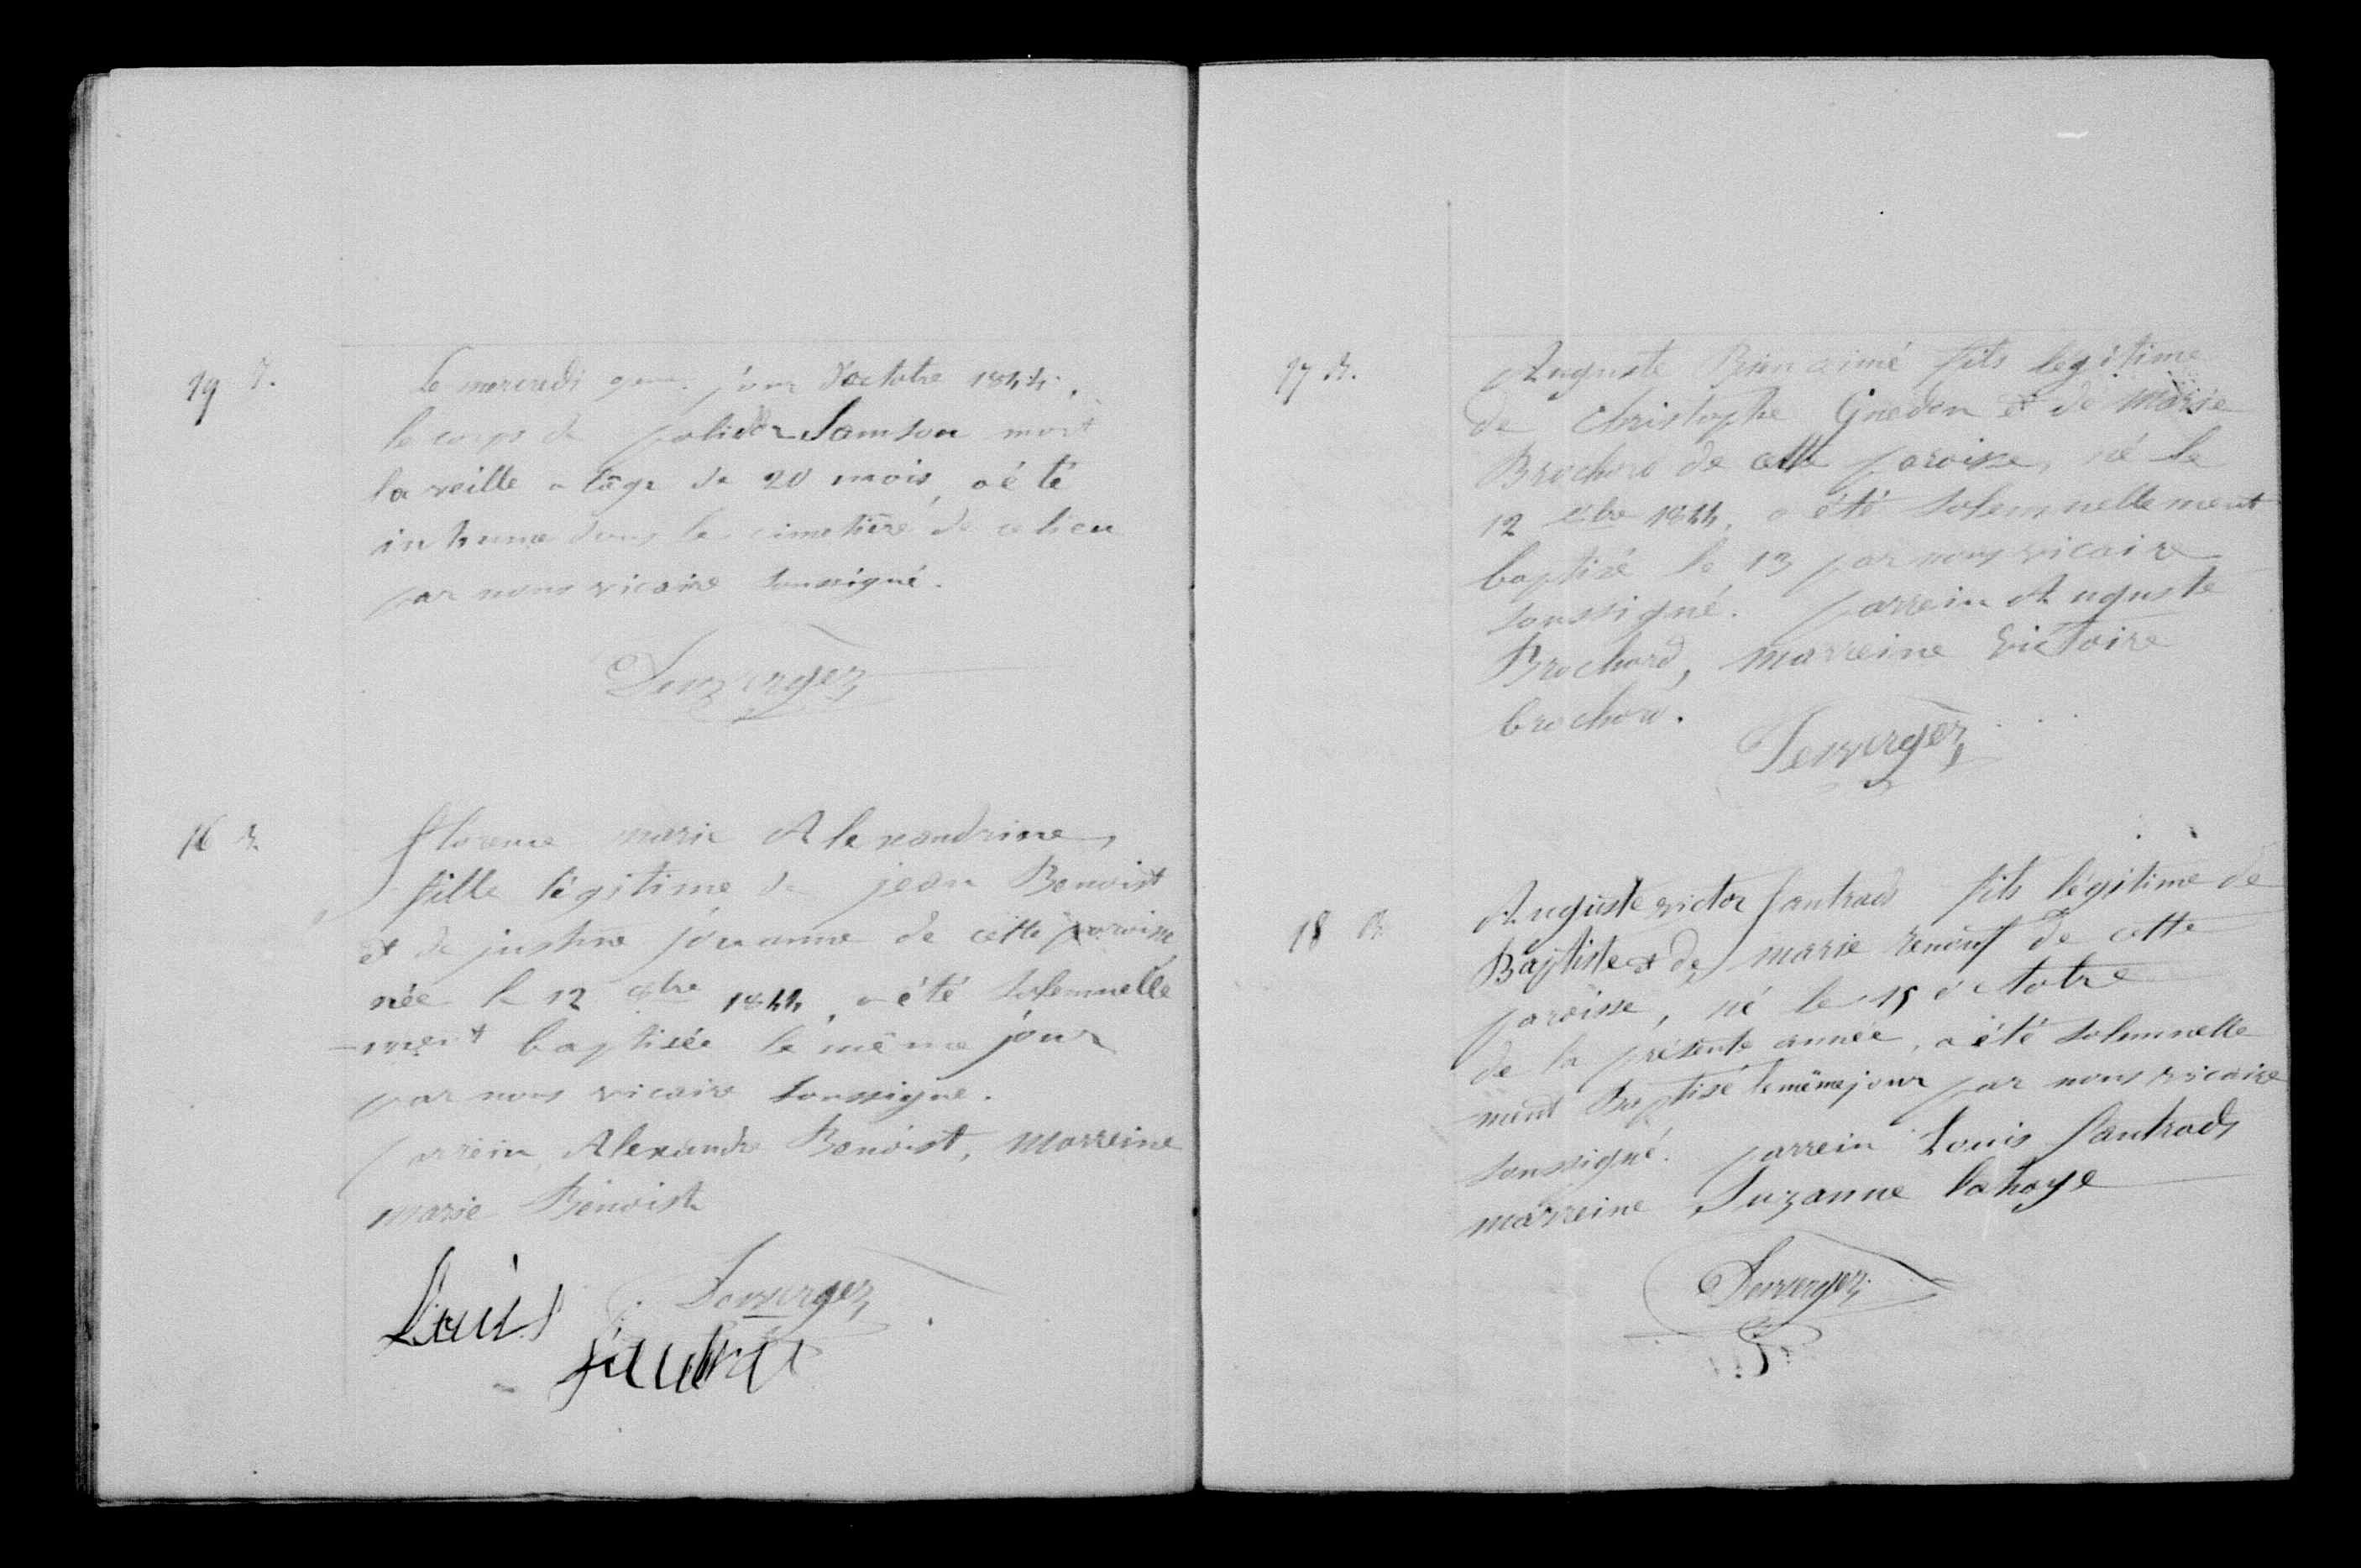 19 I.
Le mercredi 9eme jour d'octobre 1844.
le corps de polidor Samson mort
la veille a l'âge de 20 mois, a été
inhumé dans le cimetière de ce lieu
par nous vicaire soussigné.
16 B.
florence marie Alexandrine,
fille légitime de jean Benoist
et de justine jouanne de cette paroisse
née le 12 8bre 1844, a été solennelle
-ment baptisée le même jour
par nous vicaire soussigné.
parrein Alexandre Benoist, marreine
marie Benoist
Louis
17 B.
Auguste Bien aimé fils legitime
de Christophe Guedon et de Marie
Brochard de cette paroisse, né le
12 8bre 1844, a été solennellement
baptisé le 13 par nous vicaire
soussigné. parrein Auguste
Brochard, marreine victoire
brochard.
18 B.
Auguste victor fautrads fils légitime de
Baptiste et de marie renouf de cette
paroisse, né le 15 octobre
de la présente année, a été solennelle
ment Baptisé le même jour par nous vicaire
soussigné. parrein Louis fautrads
marreine Suzanne lahaye